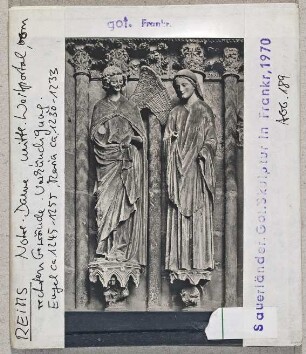 got. Frankr.
REIMS Notre-Dame mittl. Westportal, vom
rechten Gewände Verkündigung.
Engel ca 1245-1255, Maria ca. 1230-1233
Sauerländer: Got. Skulptur in Frankr., 1970
Abb. 189